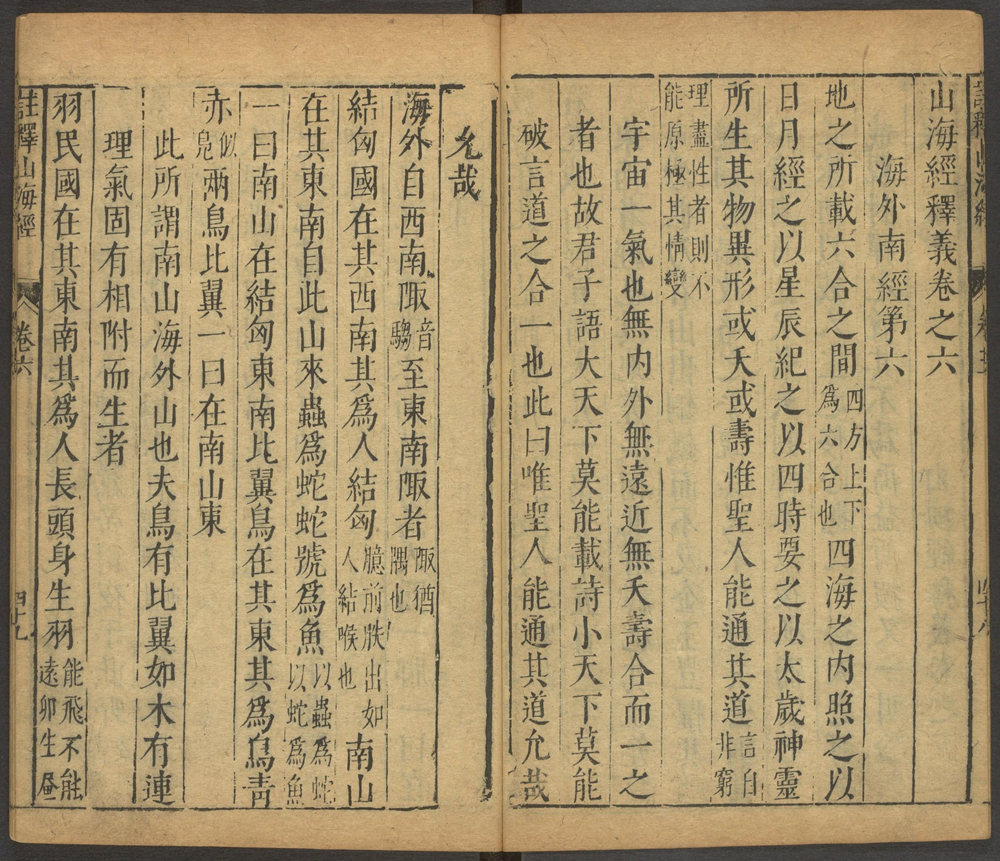 山海經釋義卷之六
海外南經第六
地之所載六合之間四方上下為六合也四海之內照之以
日月經之以星辰紀之以四時要之以太歲神靈
所生其物異形或夭或壽惟聖人能通其道言自非窮
理盡性者則不能原極其情變
宇宙一氣也無内外無遠近無夭壽合而一之
者也故君子語大天下莫能載詩小天下莫能
破言道之合一也此曰唯聖人能通其道允哉
允哉
海外自西南陬音騶至東南陬者陬猶隅也
結匈國在其西南其爲人結匈臆前胅出如人結喉也南山
在其東南自此山來蟲爲蛇蛇號爲魚以蟲爲蛇以蛇爲魚
一曰南山在結匈東南比翼鳥在其東其爲鳥青
赤似鳧兩鳥比翼一曰在南山東
此所謂南山海外山也夫鳥有比翼如木有連
理氣固有相附而生者
羽民國在其東南其爲人長頭身生羽能飛不能遠卵生
註釋山海經
卷六
四十九